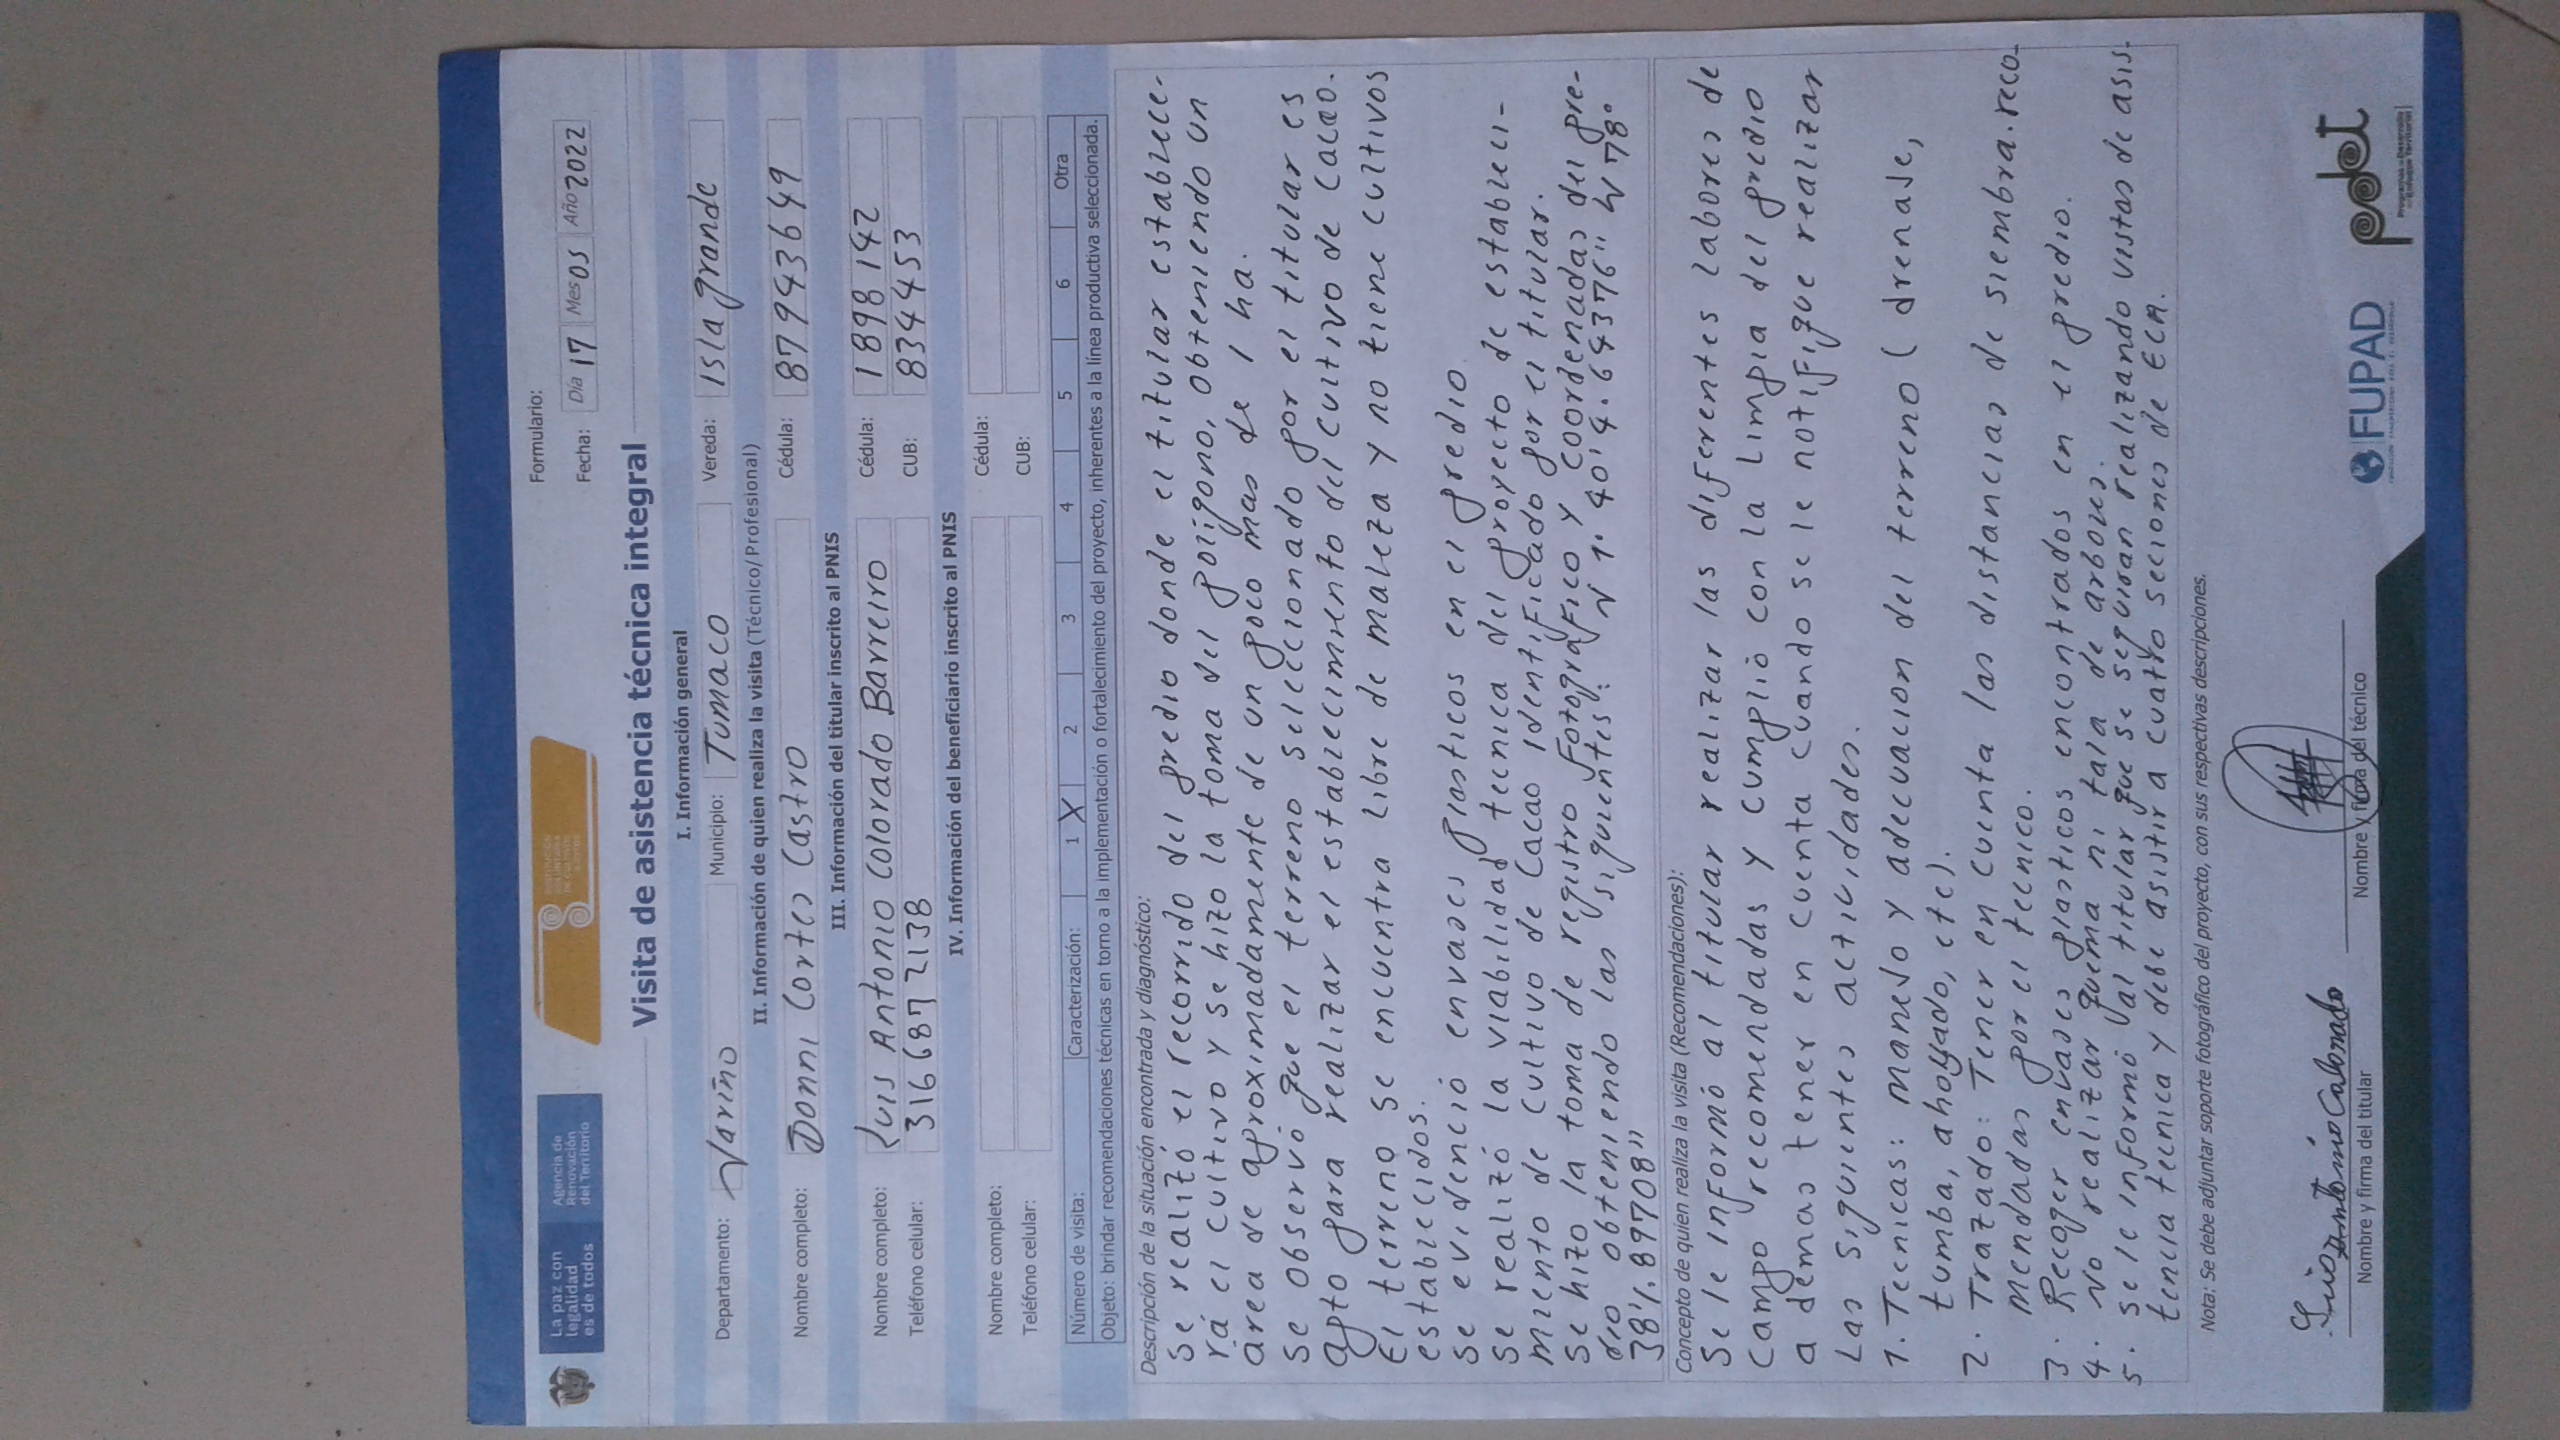 La paz con
legalidad
es de todos
Agencia de
Renovación
del Territorio
Formulario:
Fecha: Día 17 Mes 05 Año 2022
Visita de asistencia técnica integral
I. Información general
Departamento: Nariño Municipio: Tumaco Vereda: Isla grande
II. Información de quien realiza la visita (Técnico/Profesional)
Nombre completo: Donni Cortes Castro Cédula: 87943649
III. Información del titular inscrito al PNIS
Nombre completo: Luis Antonio Colorado Barreiro Cédula: 1898142
Teléfono celular: 3166872138 CUB: 834453
IV. Información del beneficiario inscrito al PNIS
Nombre completo: Cédula:
Teléfono celular: CUB:
Número de visita: Caracterización: 1 X 2 3 4 5 6 Otra
Objeto: brindar recomendaciones técnicas en torno a la implementación o fortalecimiento del proyecto, inherentes a la línea productiva seleccionada.
Descripción de la situación encontrada y diagnóstico:
Se realizó el recorrido del predio donde el titular establece-
rá el cultivo y se hizo la toma del polígono, obteniendo un
area de aproximadamente de un poco mas de 1 ha.
Se observó que el terreno seleccionado por el titular es
apto para realizar el establecimiento del cultivo de cacao.
El terreno se encuentra libre de maleza y no tiene cultivos
establecidos.
Se evidenció envases plasticos en el predio.
Se realizó la viabilidad tecnica del proyecto de estableci-
miento de cultivo de Cacao identificado por el titular.
Se hizo la toma de registro fotográfico y coordenadas del pre-
dio obteniendo las siguientes: N 1° 40' 4.64376" W 78°
38'1.89708"
Concepto de quien realiza la visita (Recomendaciones):
Se le informó al titular realizar las diferentes labores de
campo recomendadas y cumplió con la limpia del predio
a demas tener en cuenta cuando se le notifique realizar
Las siguientes actividades.
1. Tecnicas: manejo y adecuacion del terreno ( drenaje,
tumba, ahoyado, etc).
2. Trazado: Tener en cuenta las distancias de siembra. reco-
mendadas por el tecnico.
3. Recoger envases plasticos encontrados en el predio.
4. No realizar quema ni tala de arboles.
5. Se le informó al titular que se seguiran realizando vistas de asis-
tencia tecnica y debe asistir a cuatro seciones de ECA.
Nota: Se debe adjuntar soporte fotográfico del proyecto, con sus respectivas descripciones.
Luis Antonio Colorado
Nombre y firma del titular
Nombre y firma del técnico
FUPAD
pdet
Programas de Desarrollo
con Enfoque Territorial